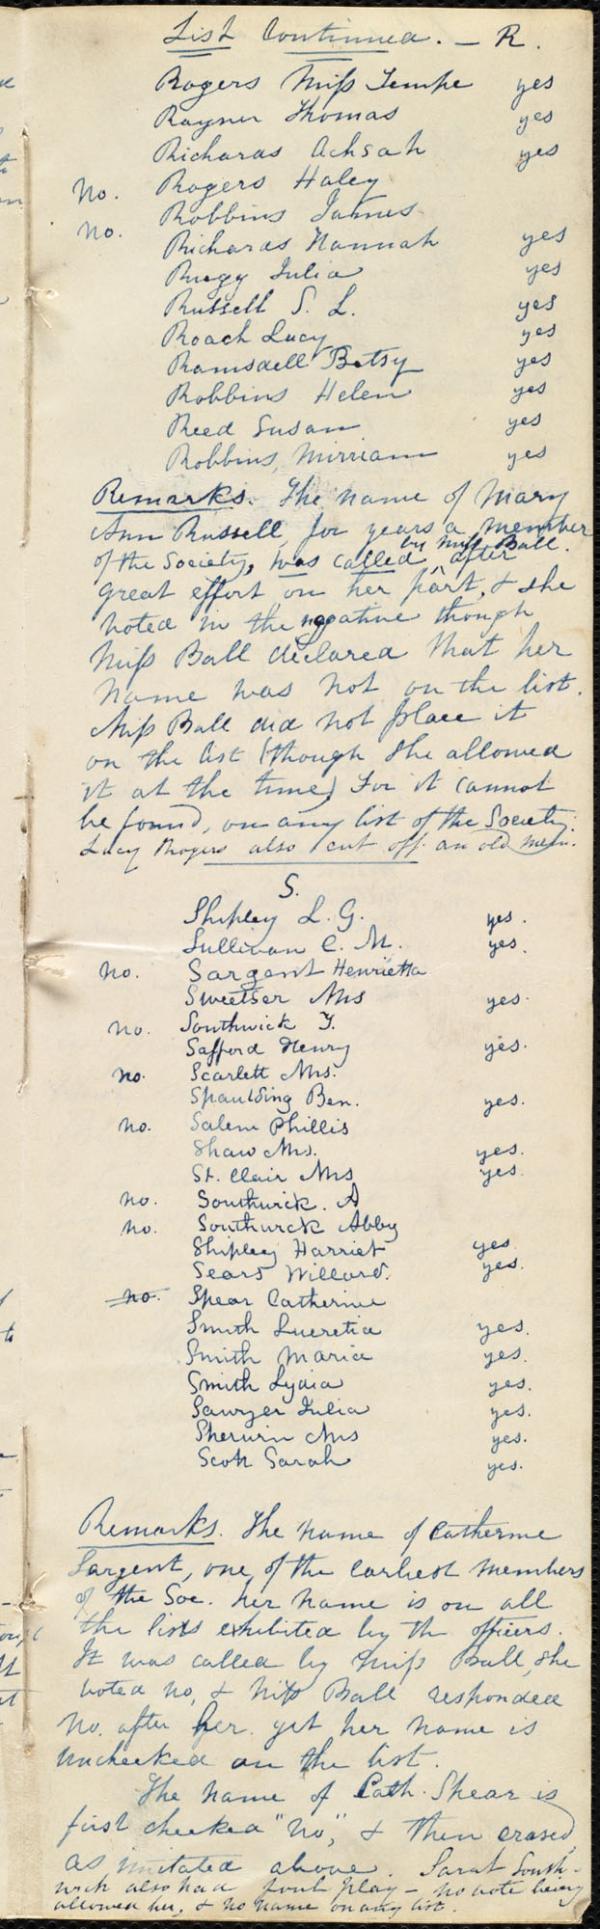 List Continued. — R.
Rogers Miss Tempe yes
Rayner Thomas yes
Richards Achsah yes
No. Rogers Haley
No. Robbins James
Richards Hannah yes
Rugg Julia yes
Russell S. L. yes
Roach Lucy yes
Ramsdell Betsy yes
Robbins Helen yes
Reed Susan yes
Robbins, Mirriam yes
Remarks. The name of Mary
Ann Russell, for years a member
of the Society, was called by Miss Ball. after
great effort on her part, & she
voted in the negative though
Miss Ball declared that her
name was not on the list.
Miss Ball did not place it
on the list (though she allowed
it at the time) for it cannot
be found, on any list of the Society.
Lucy Rogers also cut off. an old mem.
S.
Shipley L. G. yes.
Sullivan C. M. yes.
No. Sargent Henrietta
Sweetser Mrs yes.
No. Southwick T.
Safford Henry yes.
No. Scarlett Mrs.
Spaulding Ben. yes.
No. Salem Phillis
Shaw Mrs. yes.
St. Clair Mrs yes.
No. Southwick. A
No. Southwick Abby
Shipley Harriet yes
Sears Willard. yes.
No. Spear Catherine
Smith Lucretia yes.
Smith Maria yes.
Smith Lydia yes.
Sawyer Julia yes.
Sherwin Mrs yes.
Scott Sarah yes.
Remarks. The name of Catherine
Sargent, one of the earliest members
of the Soc. her name is on all
the lists exhibited by the officers.
It was called by Miss Ball, she
voted no, & Miss Ball responded
No. after her. yet her name is
unchecked on the list.
The name of Cath. Spear is
first checked "No", & then erased,
as imitated above. Sarah South-
wick also had foul play — no vote being
allowed her, & no name on any list.